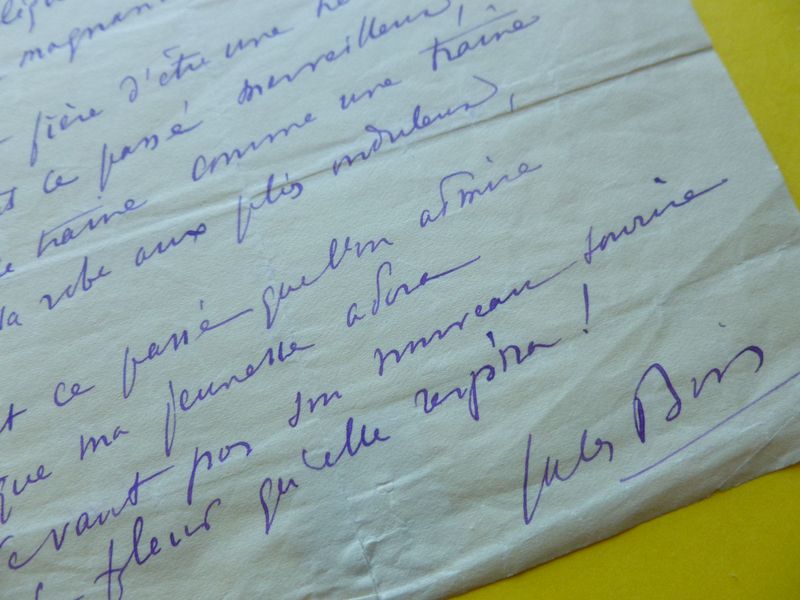 magnan
fière d'être une
ce passé merveilleux,
traîne comme une traîne
sa robe aux plis onduleux,
ce passé que l'on admire
que ma jeunesse adora
pas son nouveau sourire
fleur qu'elle respira !
Jules Bois